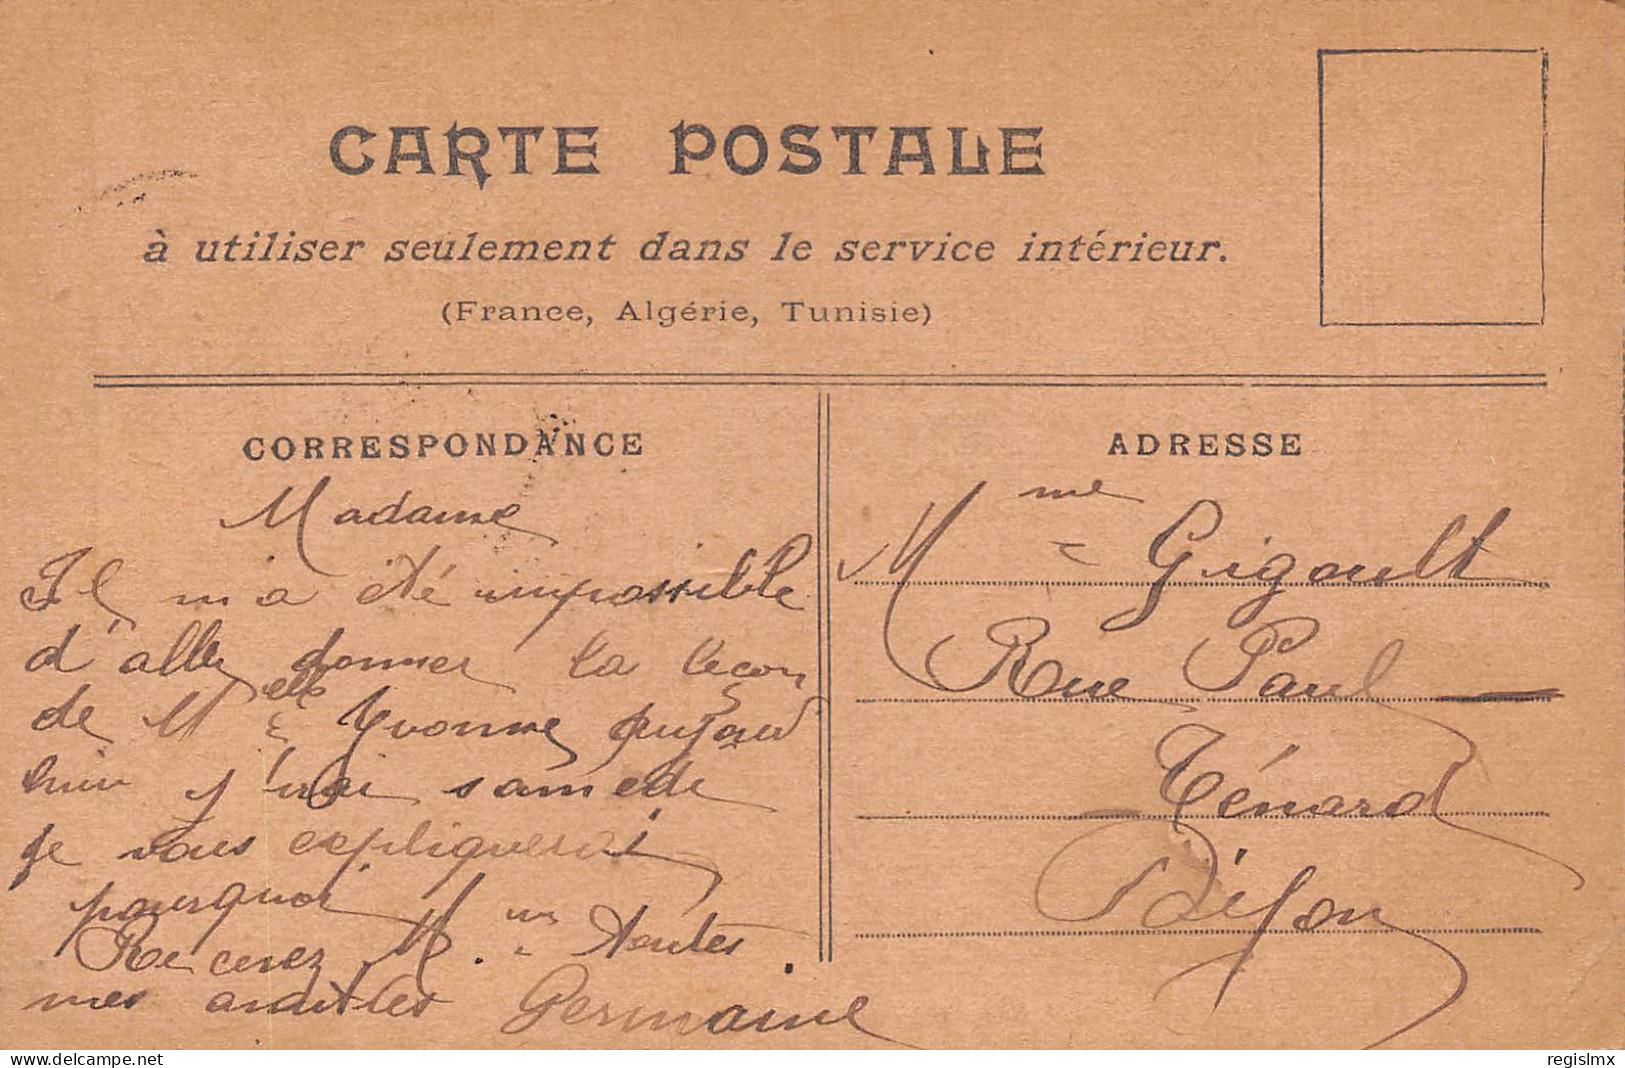 CARTE POSTALE
à utiliser seulement dans le service intérieur.
(France, Algérie, Tunisie)
CORRESPONDANCE
Madame
Il m'a été impossible
d'aller donner la leçon
de Melle Yvonne aujourd
hui j'irai samedi
je vous expliquerai
pourquoi
Recevez Mme toutes
mes amitiés Germaine
ADRESSE
Mme Gigault
Rue Paul
Ténard
Dijon
delcampe.net
regislmx